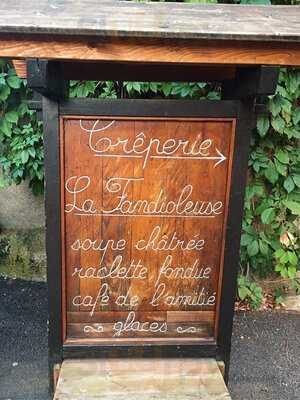 Crêperie →
La Fandioleuse
soupe châtrée
raclette, fondue
café de l'amitié
~ glaces ~